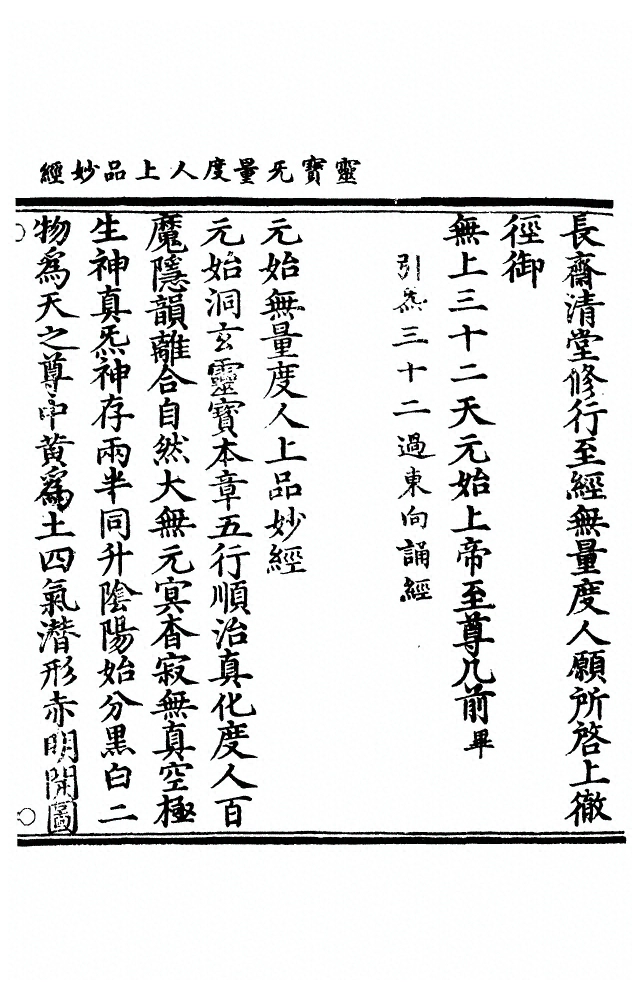 靈寶无量度人上品妙經
長齋清堂修行至經無量度人願所啓上徹
徑御
無上三十二天元始上帝至尊几前畢
引炁三十二過東向誦經
元始無量度人上品妙經
元始洞玄靈寶本章五行順治真化度人百
魔隱韻離合自然大無元冥杳寂無真空極
生神真炁神存兩半同升陰陽始分黑白二
物爲天之尊中黃爲土四氣潛形赤明開圖